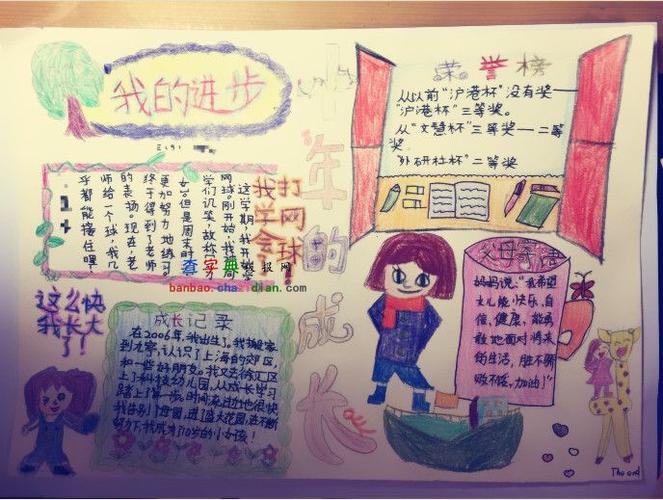 我的进步
十年的成长
荣誉榜
从以前"沪港杯"没有奖——
"沪港杯"三等奖。
从"文慧杯"三等奖——二等
奖
"外研社杯"二等奖
我学会
打网球!
这学期,我开始学
网球。刚开始,我
学们讥笑,故称
女。但是周末时
更加努力地练习
终于得到了老师
的表扬。现在,老
师给一个球,我几
乎都能接住哩!
查字典板报网
banbao.chazidian.com
这么快
我长大
了!
成长记录
在2006年,我出生了,我搬家
到九亭,认识了上海的郊区,
和一些好朋友。我又去徐汇区
上了科技幼儿园,从成长学习
踏上了第一步。时间流过,也很快
我告别了母园,进了盛大花园,在不断
努力下,我成为了10岁的小女孩!
父母寄语
妈妈说:"我希望
女儿能,快乐,自
信,健康,能勇
敢地面对将来
的生活,胜不骄
败不馁,加油!"
The end